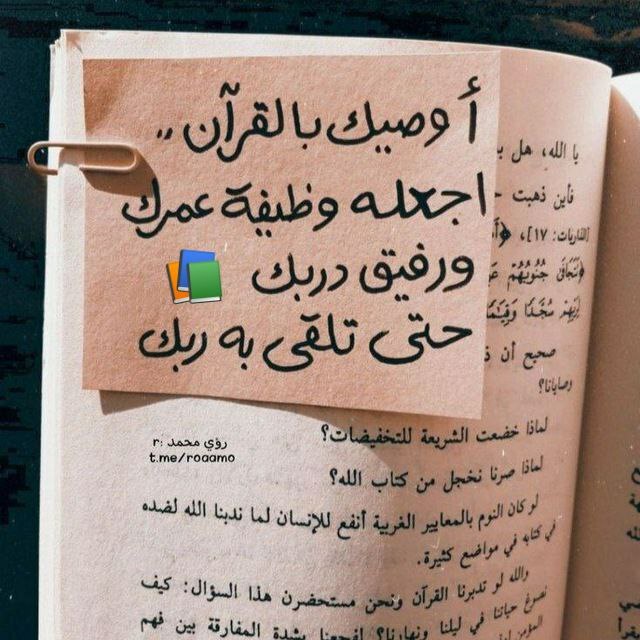 أوصيك بالقرآن ,,
اجعله وظيفة عمرك
ورفيق دربك
حتى تلقى به ربك
رؤي محمد :r
t.me/roaamo
يا الله، هل
فأين ذهبت
[الذاريات: ١٧]،
تَتَجَافَىٰ جُنُوبُهُمْ
رَبَّهُمْ سُجَّدًا وَقِيَٰمًا
صحيح أن
وصايانا؟
لماذا خضعت الشريعة للتخفيضات؟
لماذا صرنا نخجل من كتاب الله؟
لو كان النوم بالمعايير الغربية أنفع للإنسان لما ندبنا الله لضده
في كتابه في مواضيع كثيرة.
والله لو تدبرنا القرآن ونحن مستحضرن هذا السؤال: كيف
نصرغ حياتنا في ليلنا ونهارنا؟ لفجعنا بشدة المفارقة بين فهم